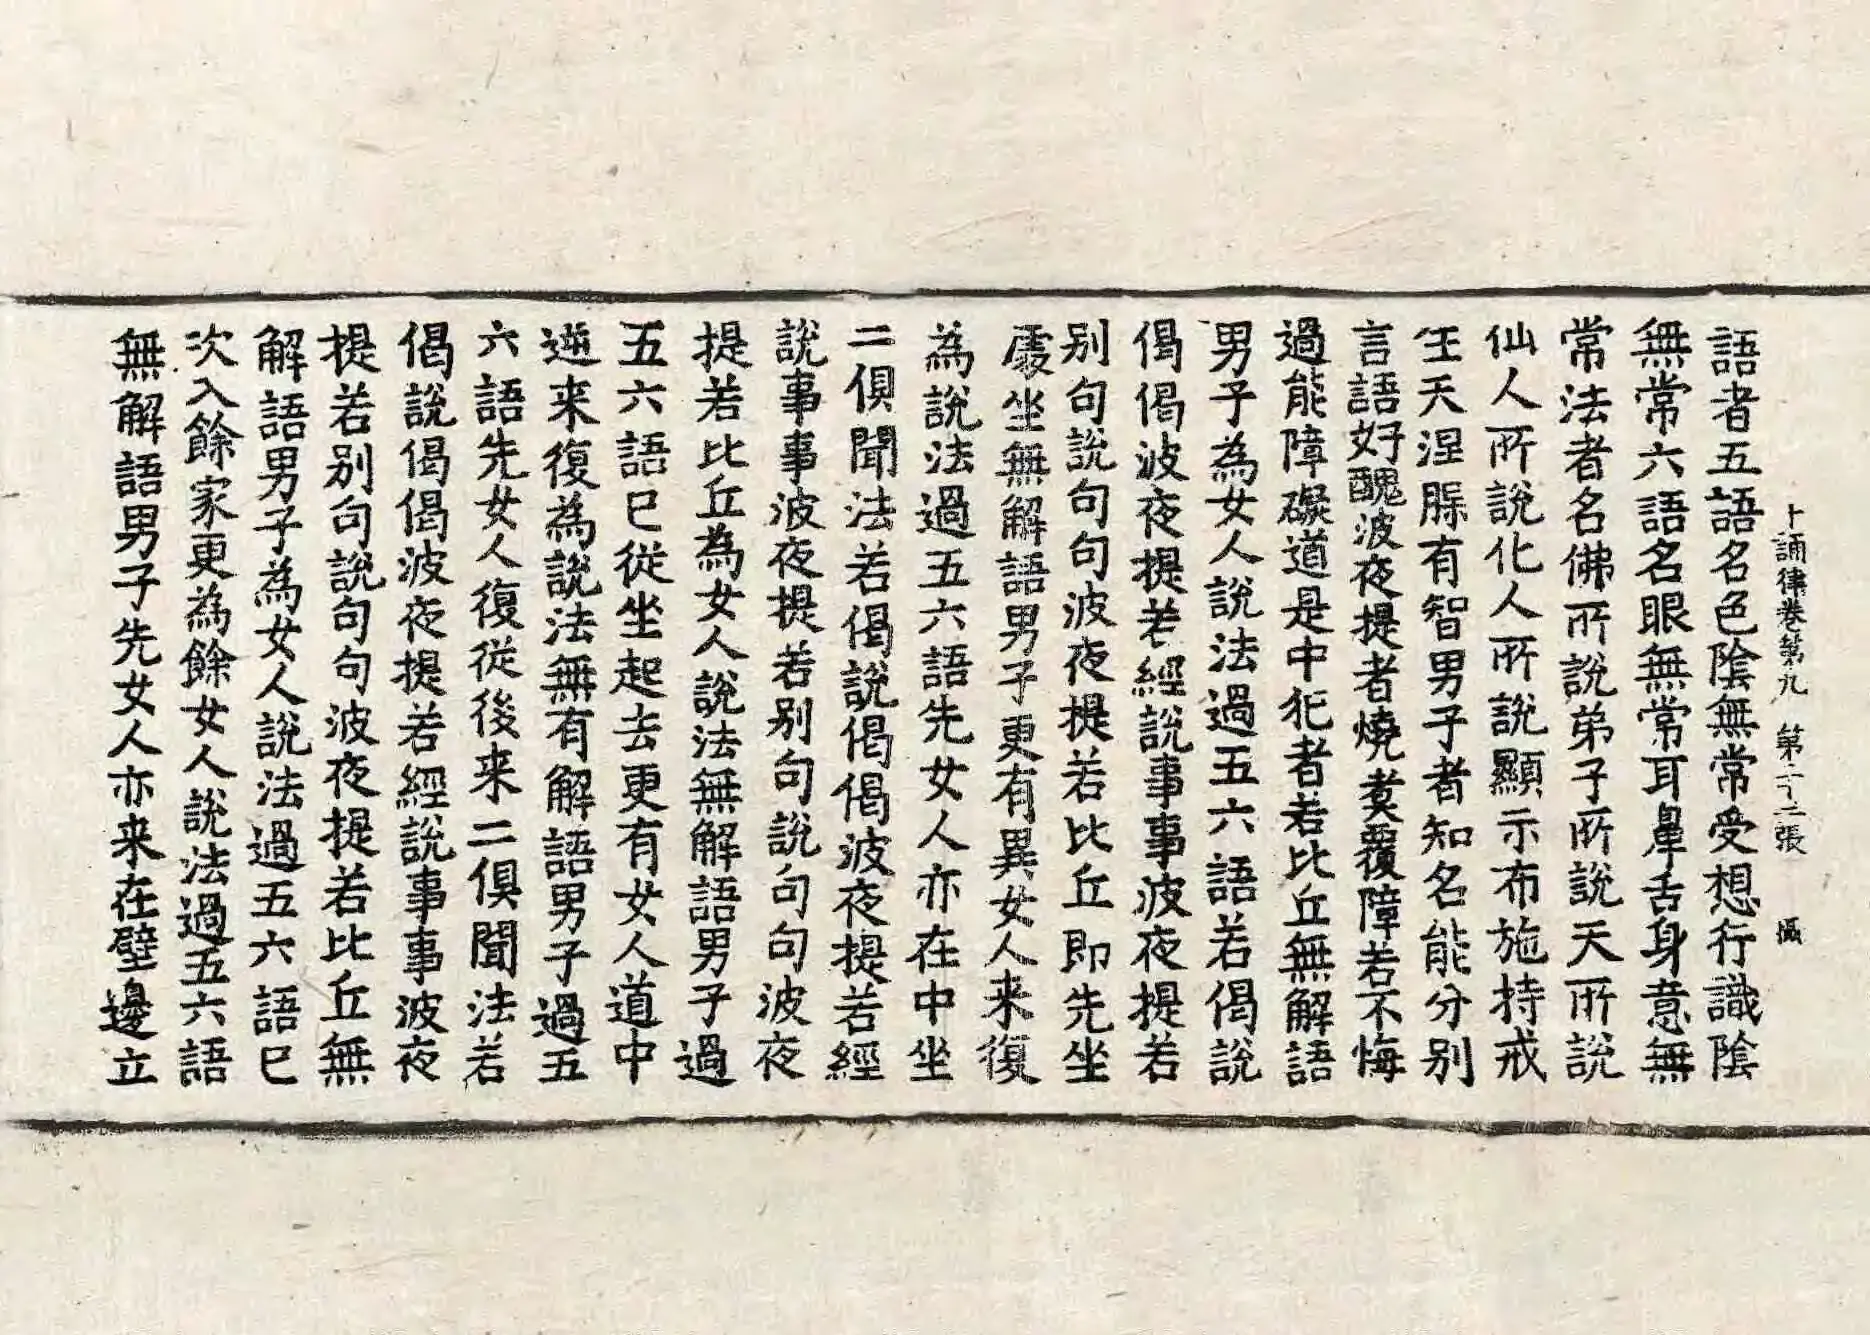 十誦律卷第九 第二十二張 攝
語者五語名色陰無常受想行識陰
無常六語名眼無常耳鼻舌身意無
常法者名佛所說弟子所說天所說
仙人所說化人所說顯示布施持戒
生天涅槃有智男子者知名能分別
言語好醜波夜提者燒煑覆障若不悔
過能障礙道是中犯者若比丘無解語
男子為女人說法過五六語若偈說
偈偈波夜提若經說事事波夜提若
別句說句句波夜提若比丘即先坐
處坐無解語男子更有異女人来復
為說法過五六語先女人亦在中坐
二俱聞法若偈說偈偈波夜提若經
說事事波夜提若別句說句句波夜
提若比丘為女人說法無解語男子過
五六語已從坐起去更有女人道中
逆来復為說法無有解語男子過五
六語先女人復從後来二俱聞法若
偈說偈偈波夜提若經說事事波夜
提若別句說句句波夜提若比丘無
解語男子為女人說法過五六語已
次入餘家更為餘女人說法過五六語
無解語男子先女人亦来在壁邊立